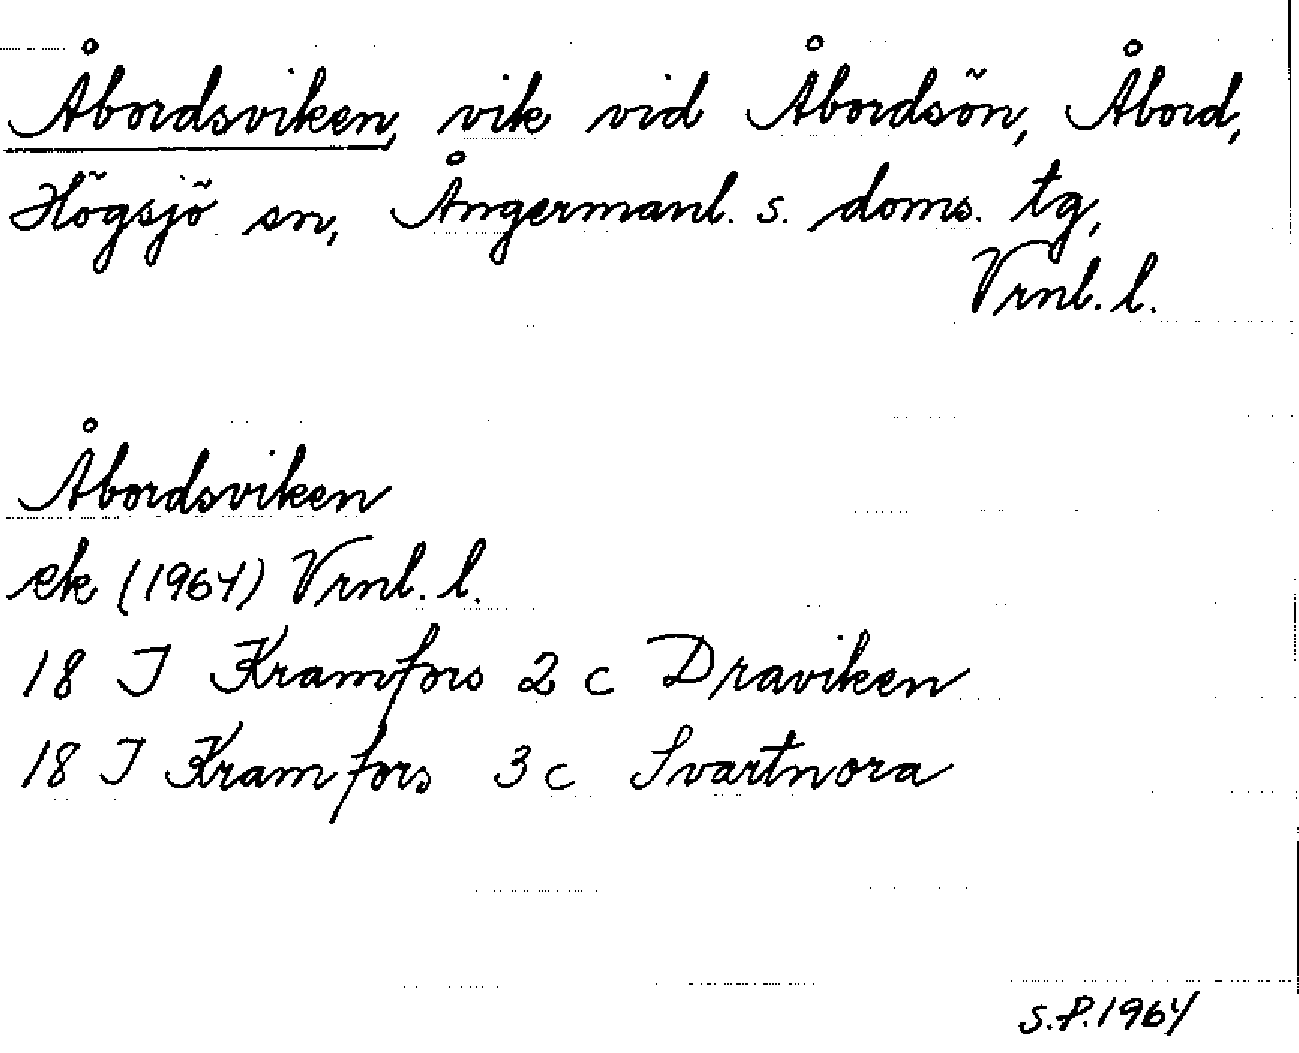 Åbordsviken, vik vid Åbordsön, Åbord,
Högsjö sn, Ångermanl. s. doms. tg,
Vrnl. l.
Åbordsviken
ek (1964) Vrnl. l.
18 I Kramfors 2 c Draviken
18 I Kramfors 3 c Svartnora
S.P. 1964